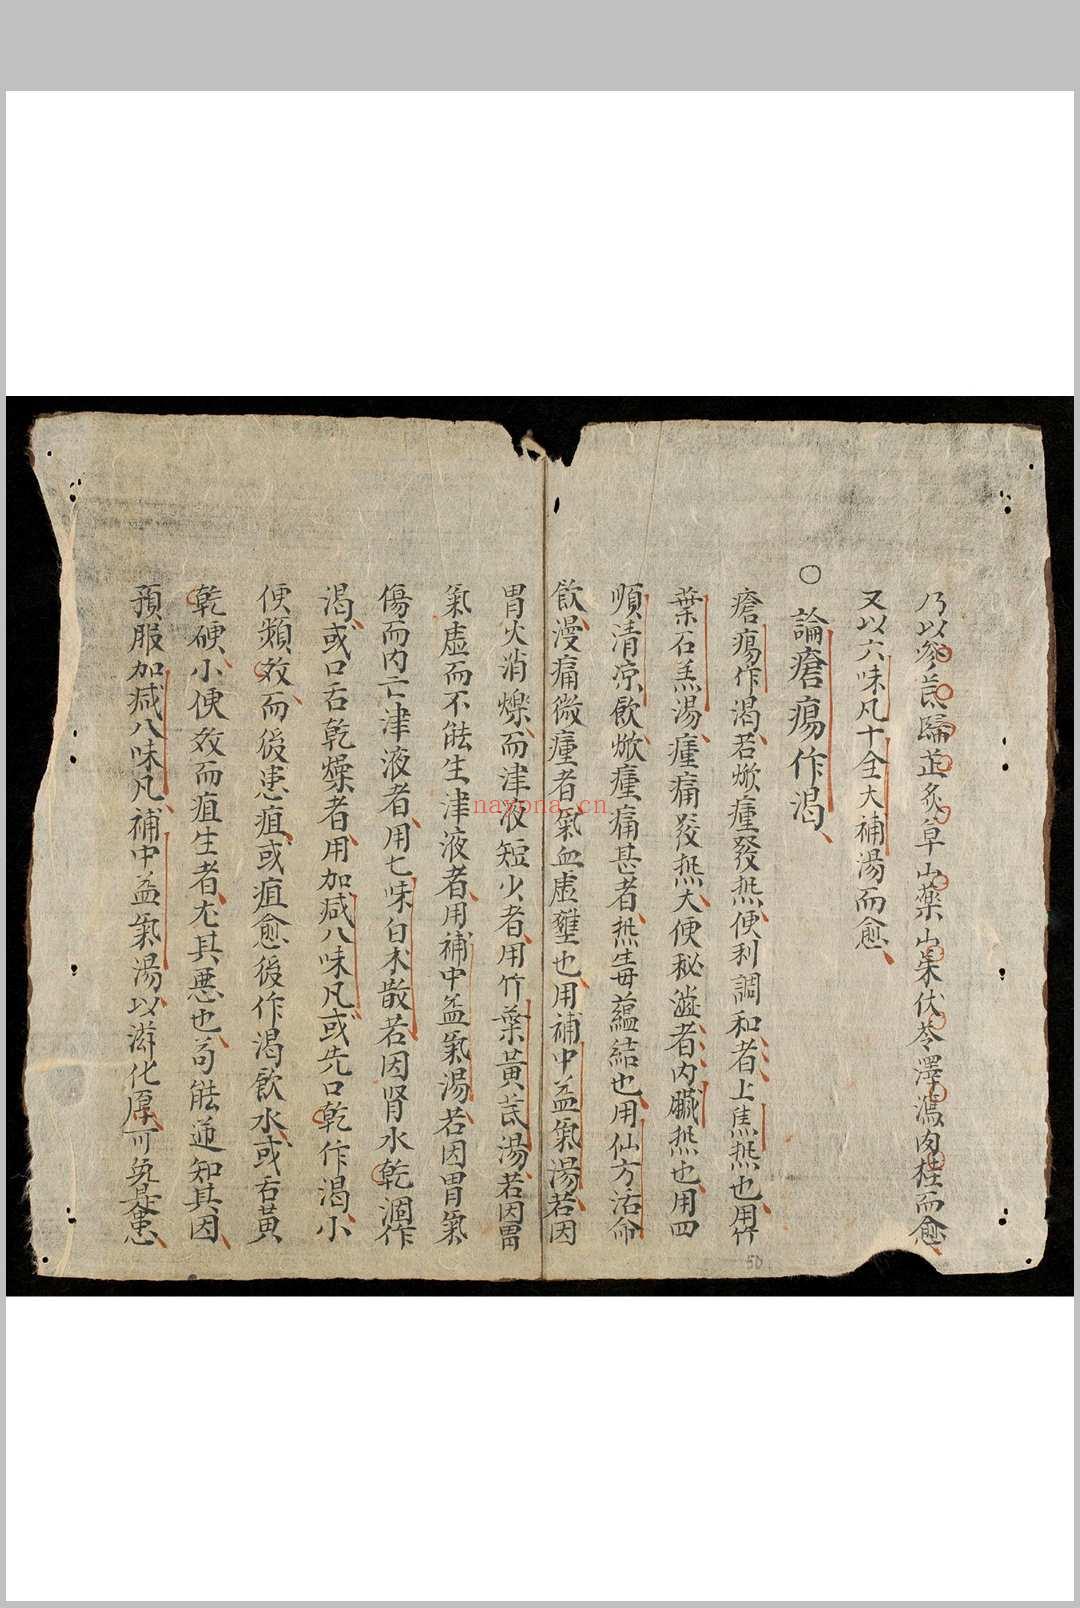 乃以參茋歸芷炙草山藥山朱伏苓澤瀉肉桂而愈
又以六味凡十全大補湯而愈
○論瘡瘍作渴
瘡瘍作渴若焮瘇發热便利調和者上焦热也用竹
葉石羔湯瘇痛發热大便秘澁者內臟热也用四
順清凉飲焮瘇痛甚者热毒蘊結也用仙方活命
飲漫痛微瘇者氣血虛壅也用補中益氣湯若因
胃火消爍而津液短少者用竹葉黃茋湯若因胃
氣虛而不能生津液者用補中益氣湯若因胃氣
傷而內亡津液者用七味白术散若因肾水乾涸作
渴或口舌乾燥者用加减八味凡或先口乾作渴小
便頻效而後患疽或疽愈後作渴飲水或舌黃
乾硬小便效而疽生者尤其悪也苟能逆知其因
預服加减八味凡補中益氣湯以滋化厚可免是患
50
nayona.cn